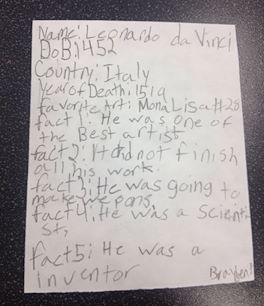 Name: Leonardo da Vinci
DoB: 1452
Country: Italy
Year of Death: 1519
favorite Art: Mona Lisa #28
fact 1: He was one of
the Best artist
fact 2: H did not finish
all his work.
fact 3: He was going to
make we pons.
fact 4: He was a Scienti
st,
fact 5: He was a
inventor